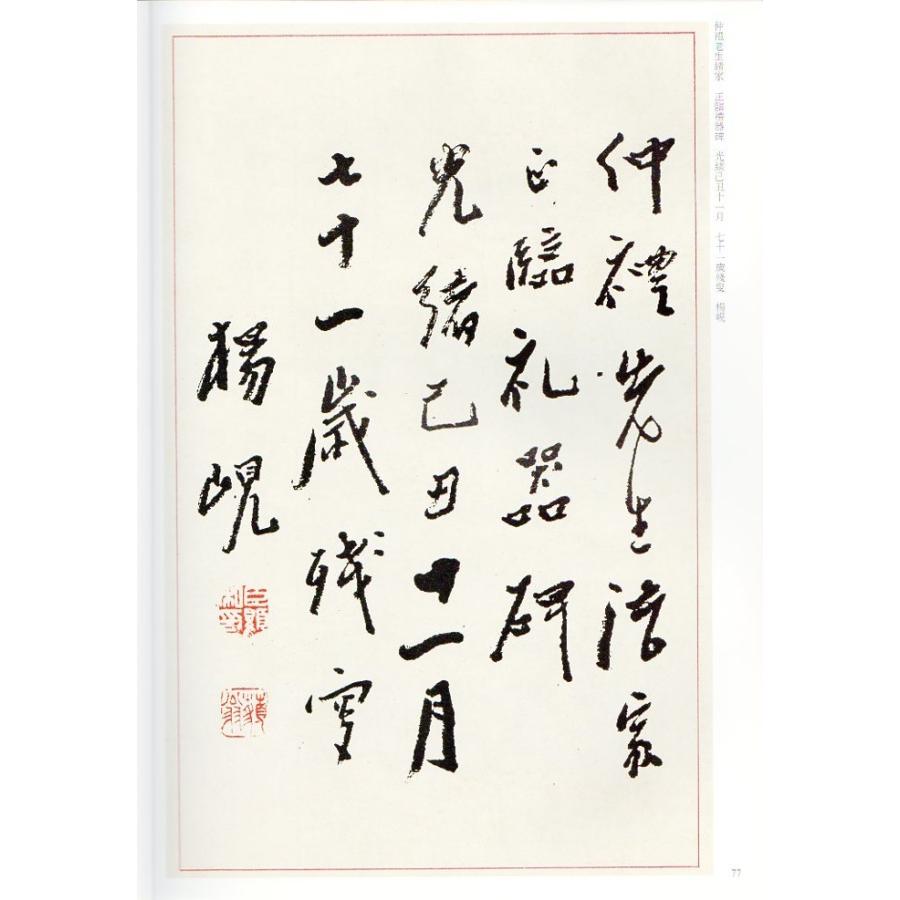 仲禮先生諸家
正臨礼器碑
光緒己丑十一月
七十一歲残叟
楊峴
仲禮先生諸家 正臨禮器碑 光緒己丑十一月 七十一歲殘叟 楊峴
77